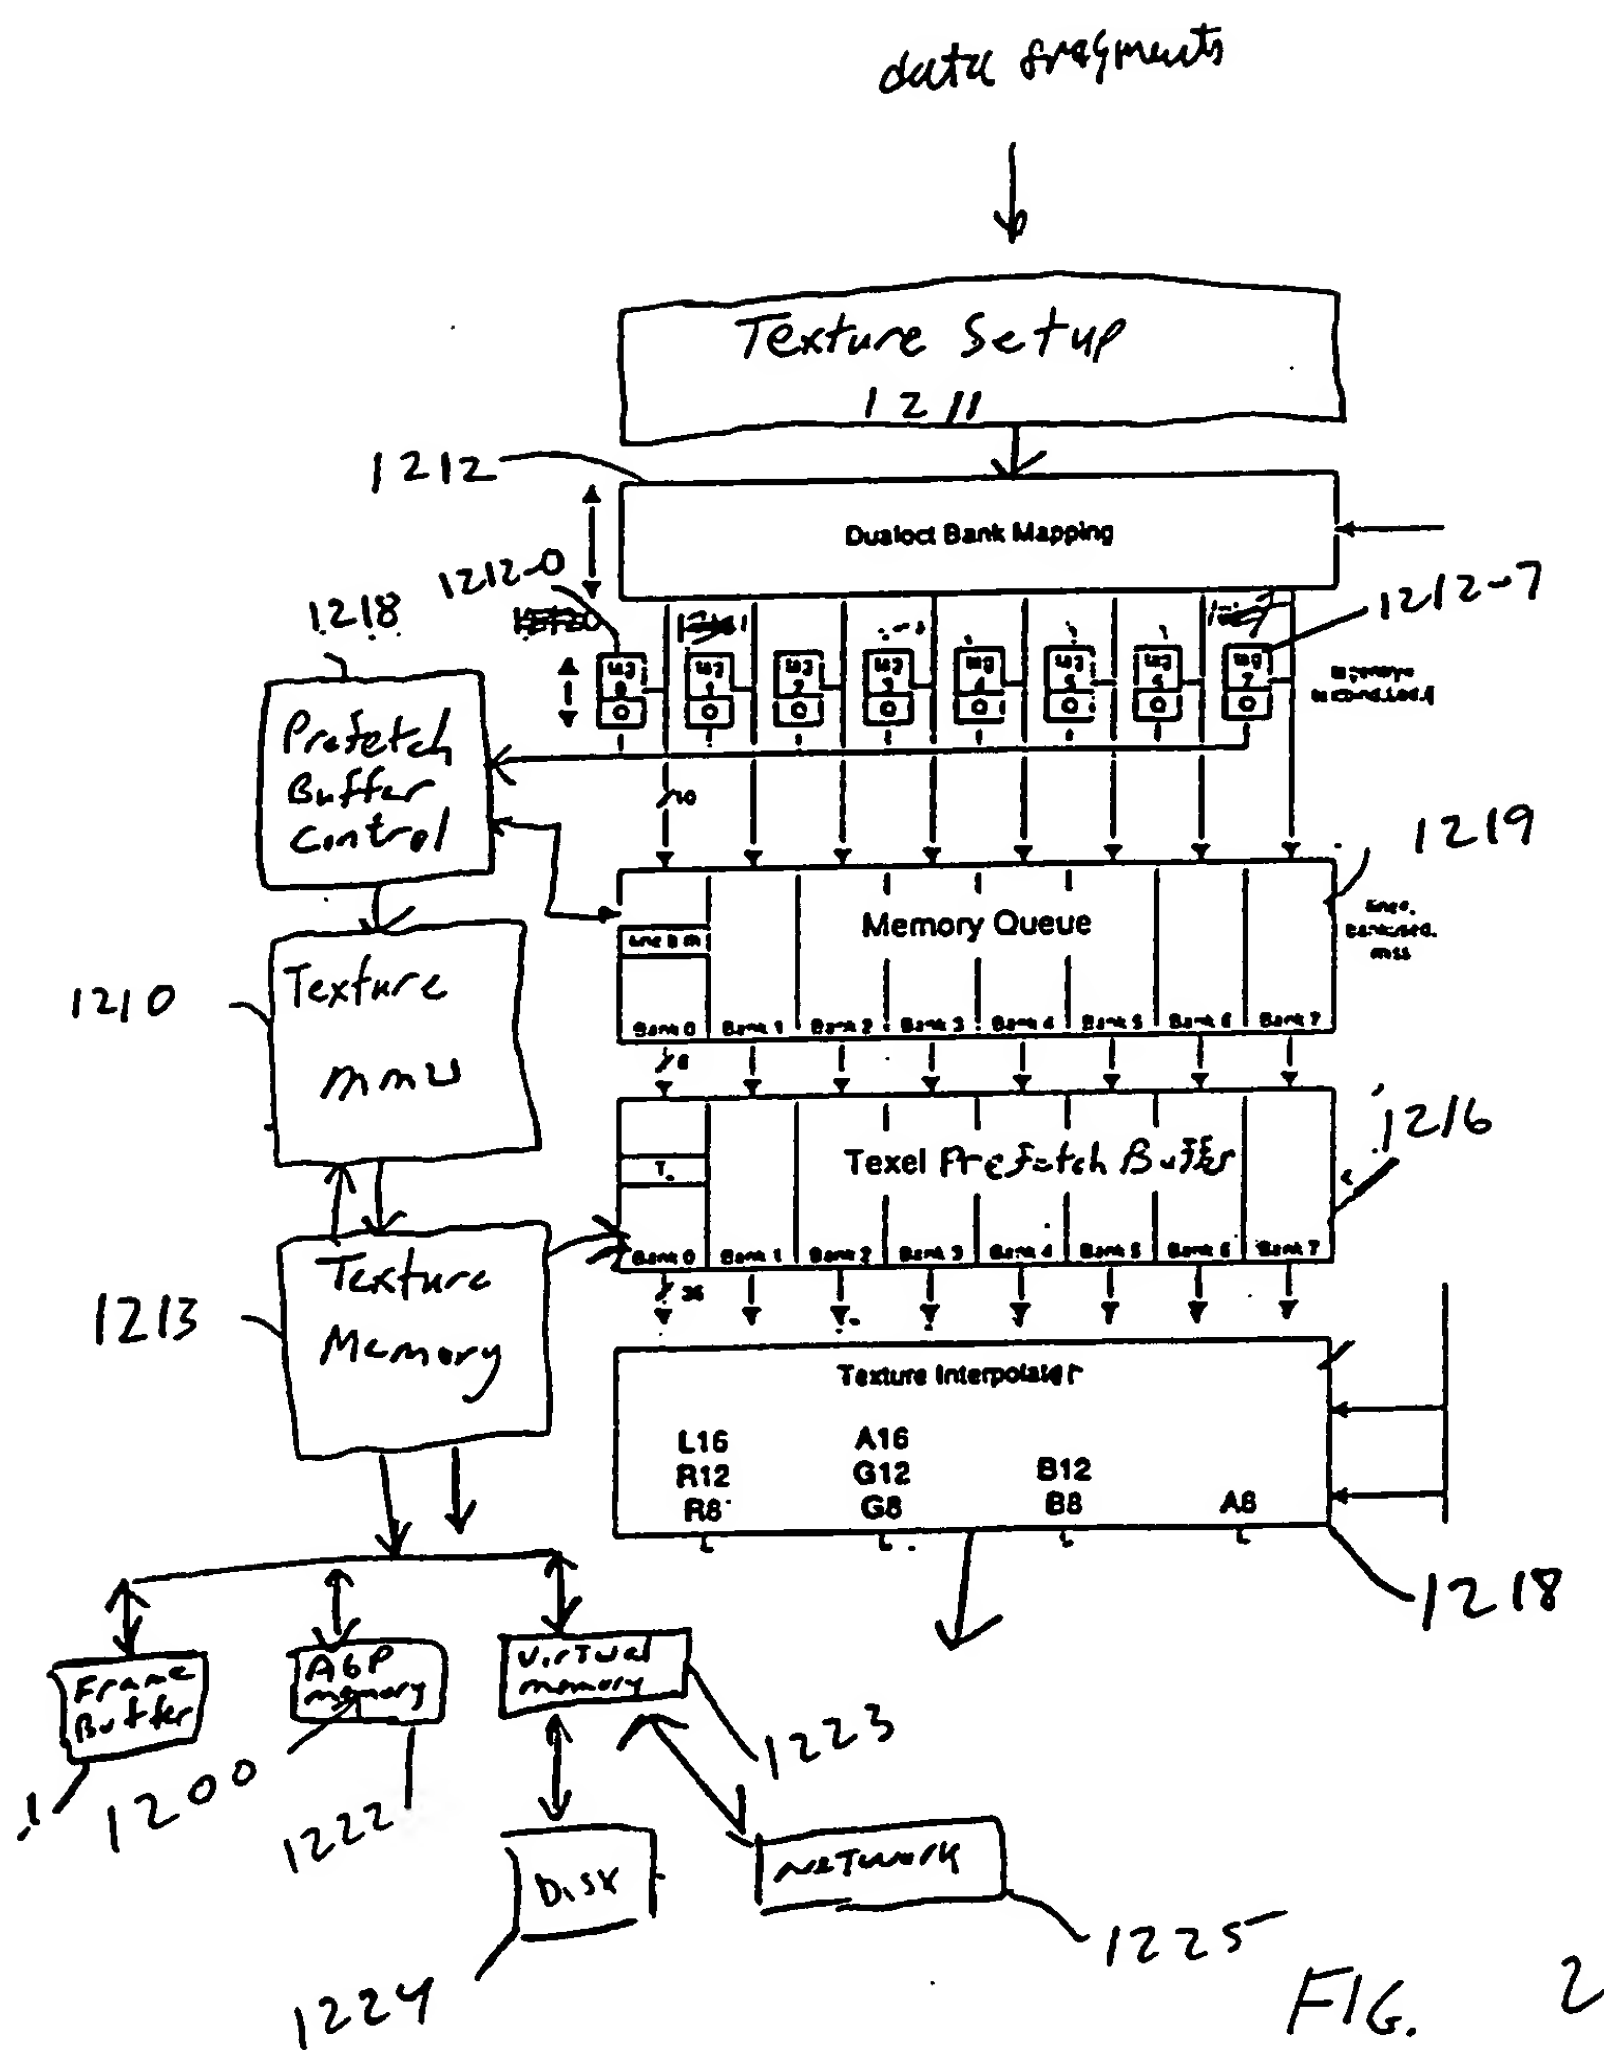 data fragments
Texture Setup
1211
1212
Dualoct Bank Mapping
1212-0
1212-7
1218
tag 0 0
tag 1 0
tag 2 0
tag 3 0
tag 4 0
tag 5 0
tag 6 0
tag 7 0
Prefetch
Buffer
Control
10
1219
Memory Queue
Bank 0 Bank 1 Bank 2 Bank 3 Bank 4 Bank 5 Bank 6 Bank 7
1210
Texture
MMU
1216
Texel Prefetch Buffer
Bank 0 Bank 1 Bank 2 Bank 3 Bank 4 Bank 5 Bank 6 Bank 7
36
1213
Texture
Memory
Texture Interpolater
L16 A16
R12 G12 B12
R8 G8 B8 A8
1218
Frame
Buffer
AGP
memory
Virtual
memory
1200
1222
1223
Disk
Network
1224
1225
FIG. 2